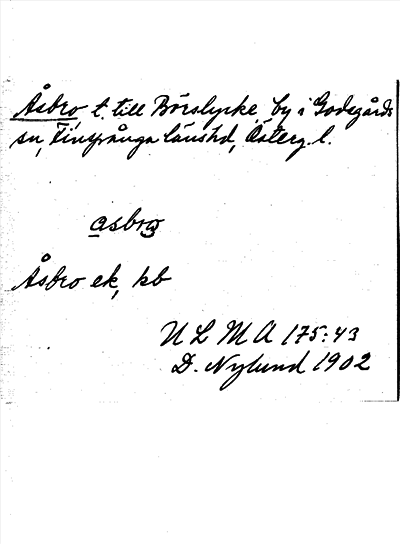 Åsbro, t. till Börslycke, by i Godegårds
sn, Finspånga länshd, Österg. l.
asbrω
Åsbro ek, kb
ULMA 175:43
D. Nylund 1902